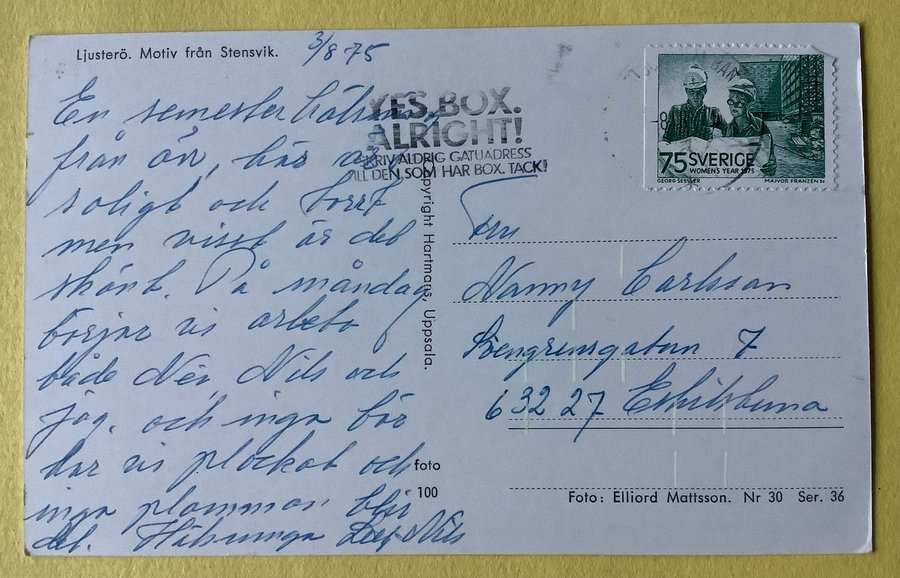 Ljusterö. Motiv från Stensvik.
3/8 75
En semesterhälsning
från ön, här är
soligt och torrt
men visst är det
skönt. På måndag
börjar vi arbeta
både Nils och
jag, och inga bär
har vi plockat och
inga plommon blir
det. Hälsningar Nils
YES, BOX.
ALRIGHT!
SKRIV ALDRIG GATUADRESS
TILL DEN SOM HAR BOX. TACK!
75 SVERIGE
WOMEN'S YEAR 1975
GEORG SESSLER MAJVOR FRANZÉN SC
Copyright Hartmans, Uppsala.
Fru
Nanny Carlsson
7
632 27 Eskilstuna
foto
100
Foto: Elliord Mattsson. Nr 30 Ser. 36